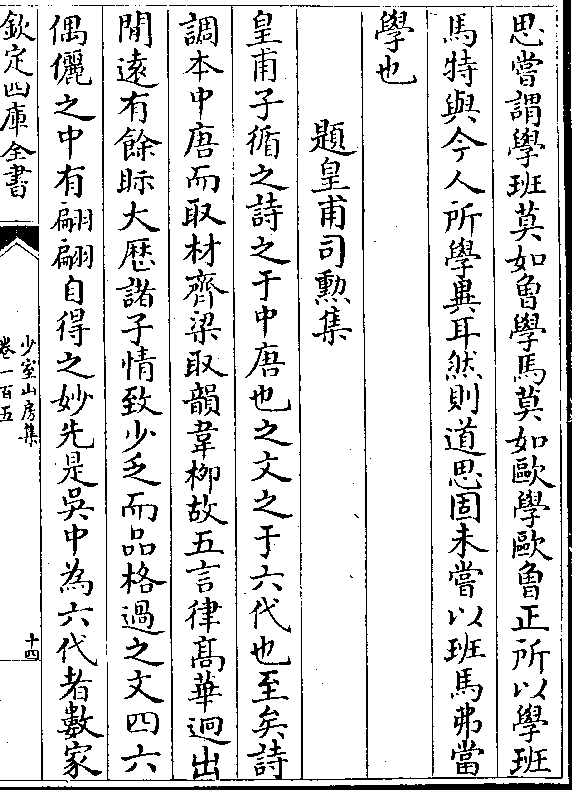 思嘗謂學班莫如曾學馬莫如歐學歐曾正所以學班
馬特與今人所學異耳然則道思固未嘗以班馬弗當
學也
題皇甫司勲集
皇甫子循之詩之于中唐也之文之于六代也至矣詩
調本中唐而取材齊梁取韻韋栁故五言律髙華迥出
閒遠有餘眎大厯諸子情致少乏而品格過之文四六
偶儷之中有翩翩自得之妙先是吳中為六代者數家
欽定四庫全書
少室山房集
卷一百五
十四